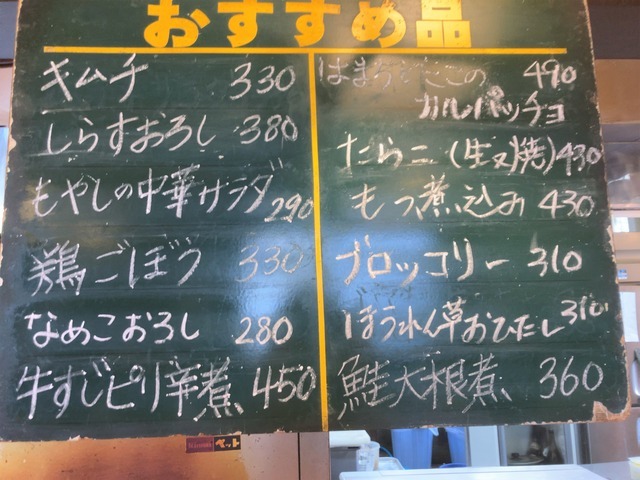 おすすめ品
キムチ 330
しらすおろし 380
もやしの中華サラダ 290
鶏ごぼう 330
なめこおろし 280
牛すじピリ辛煮 450
490
カルパッチョ
たらこ(生又焼) 430
もつ煮込み 430
ブロッコリー 310
ほうれん草おひたし 310
鮭大根煮 360
ペット